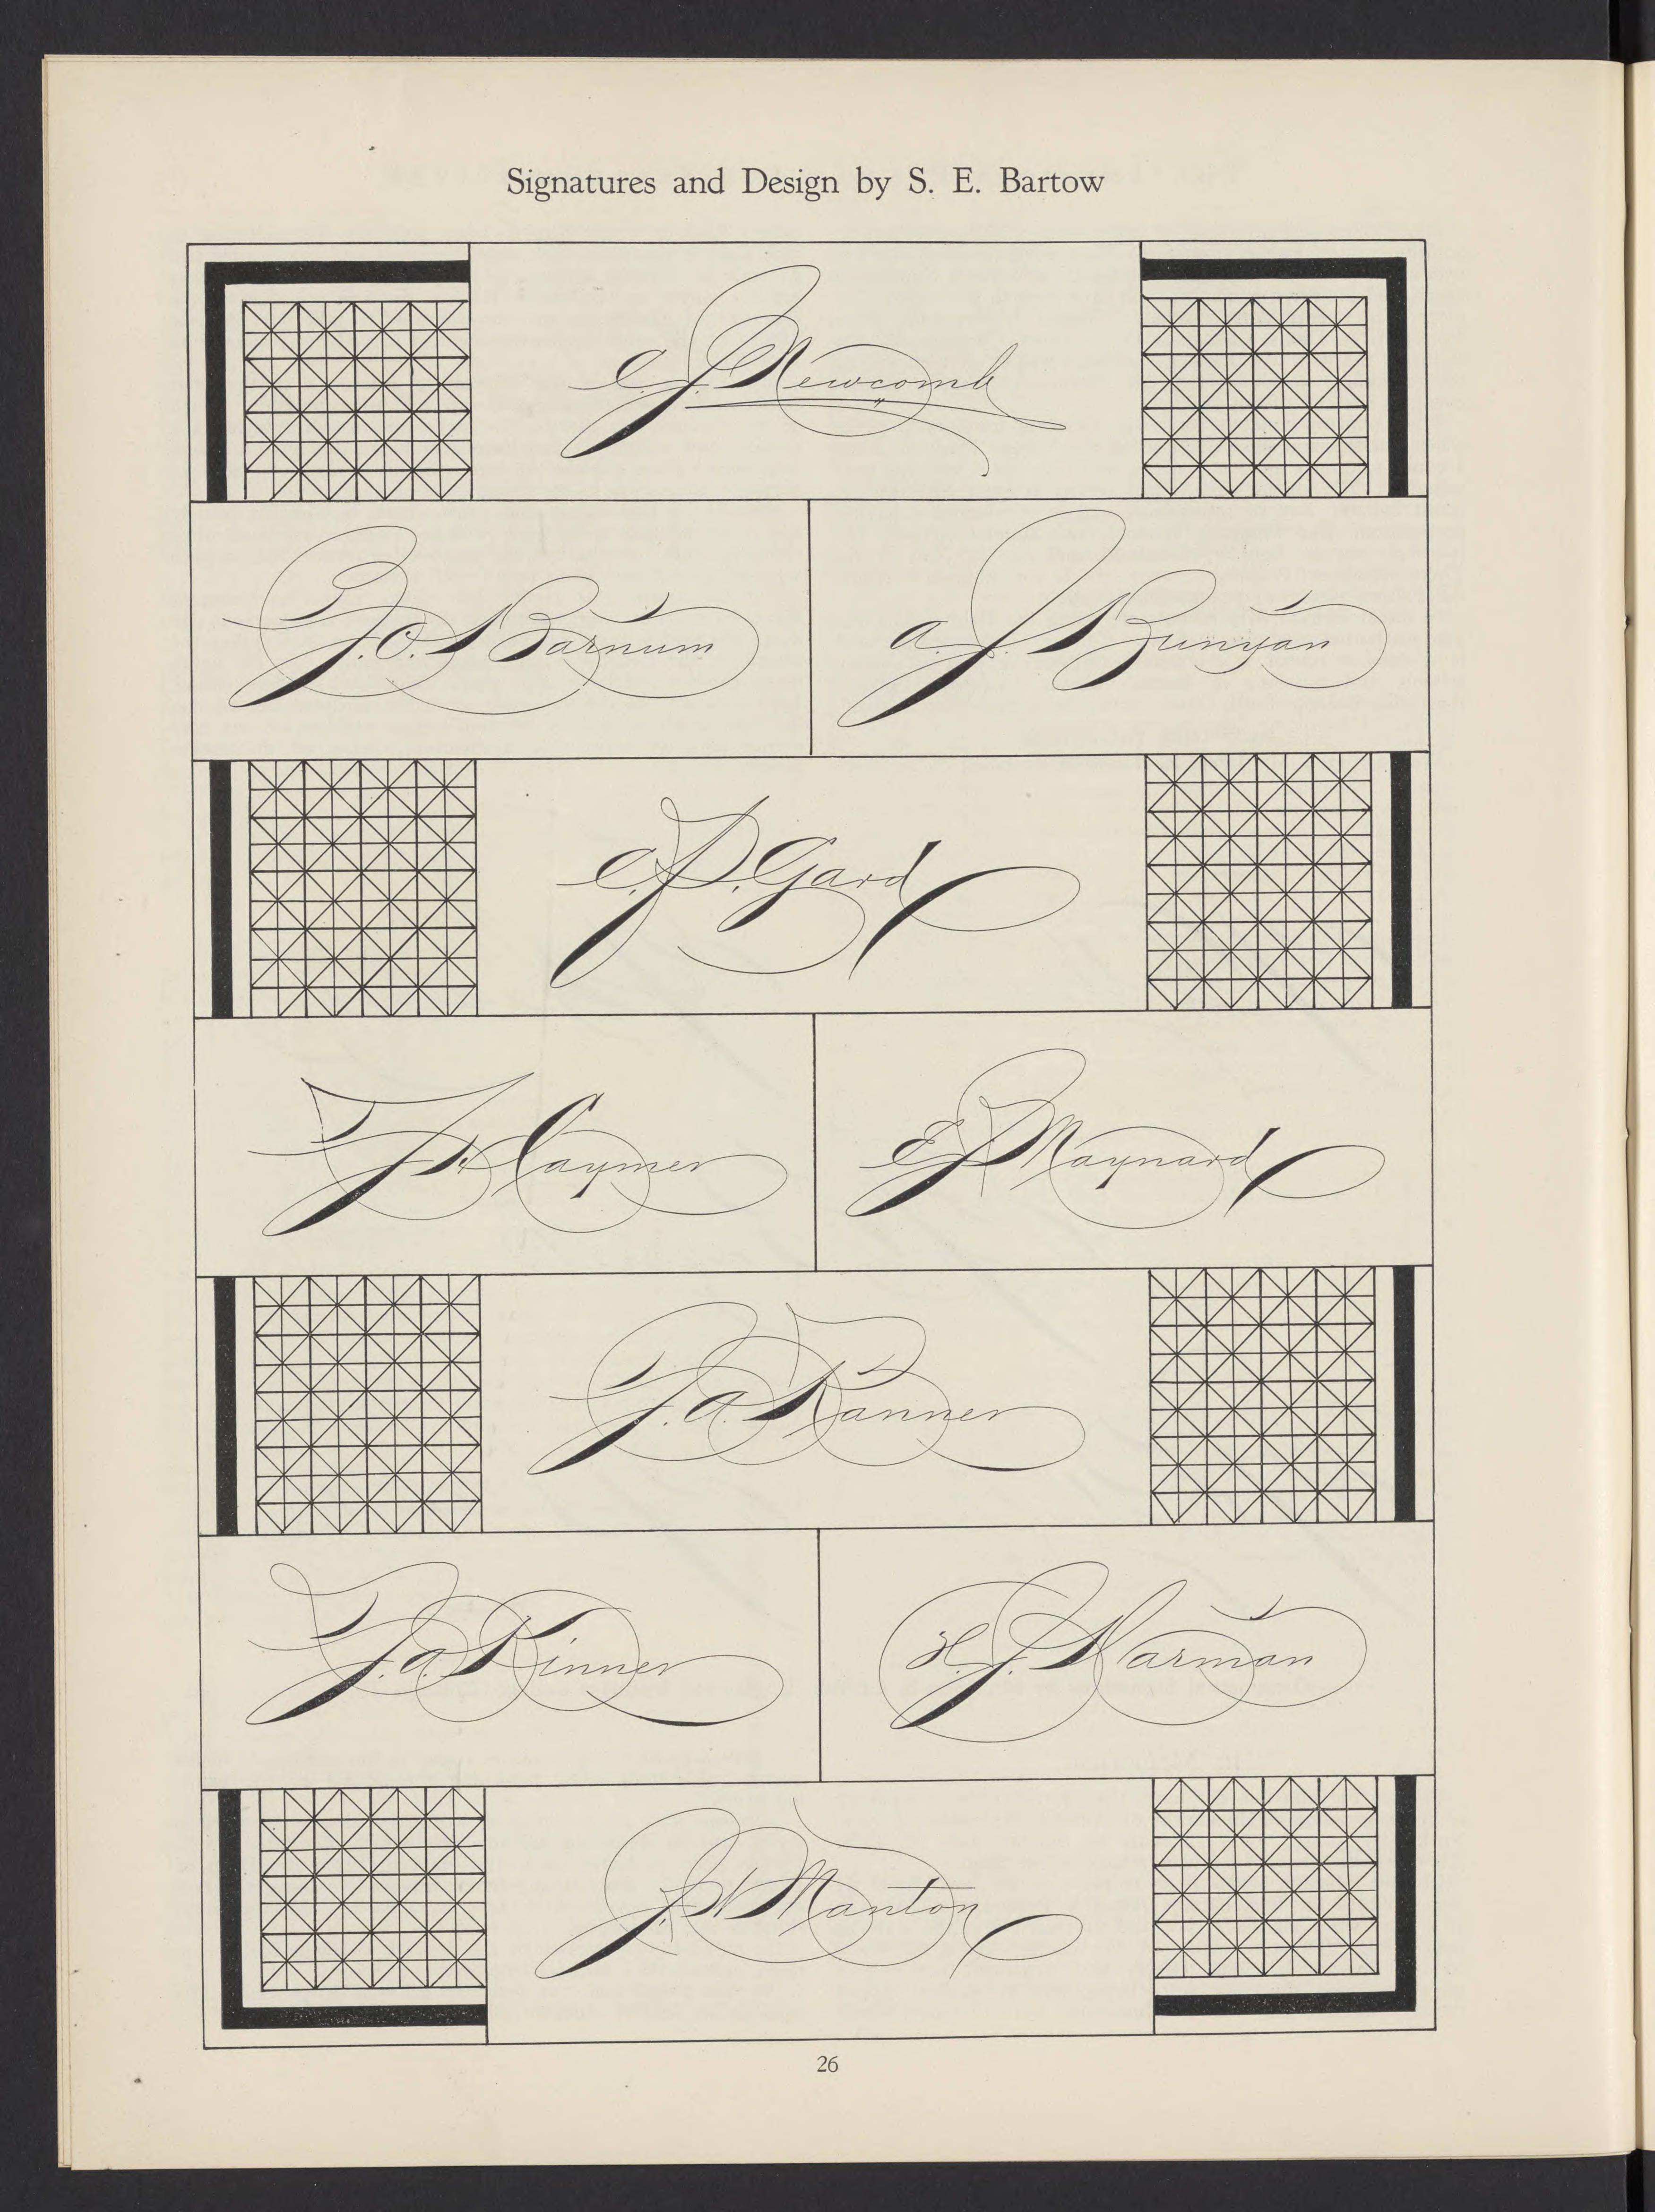 Signatures and Design by S. E. Bartow
C. J. Newcomb
J. O. Barnum
A. J. Bunyan
C. P. Gard
Claymer
E. P. Maynard
J. A. Kanner
J. A. Kinner
H. J. Harman
Manton
26